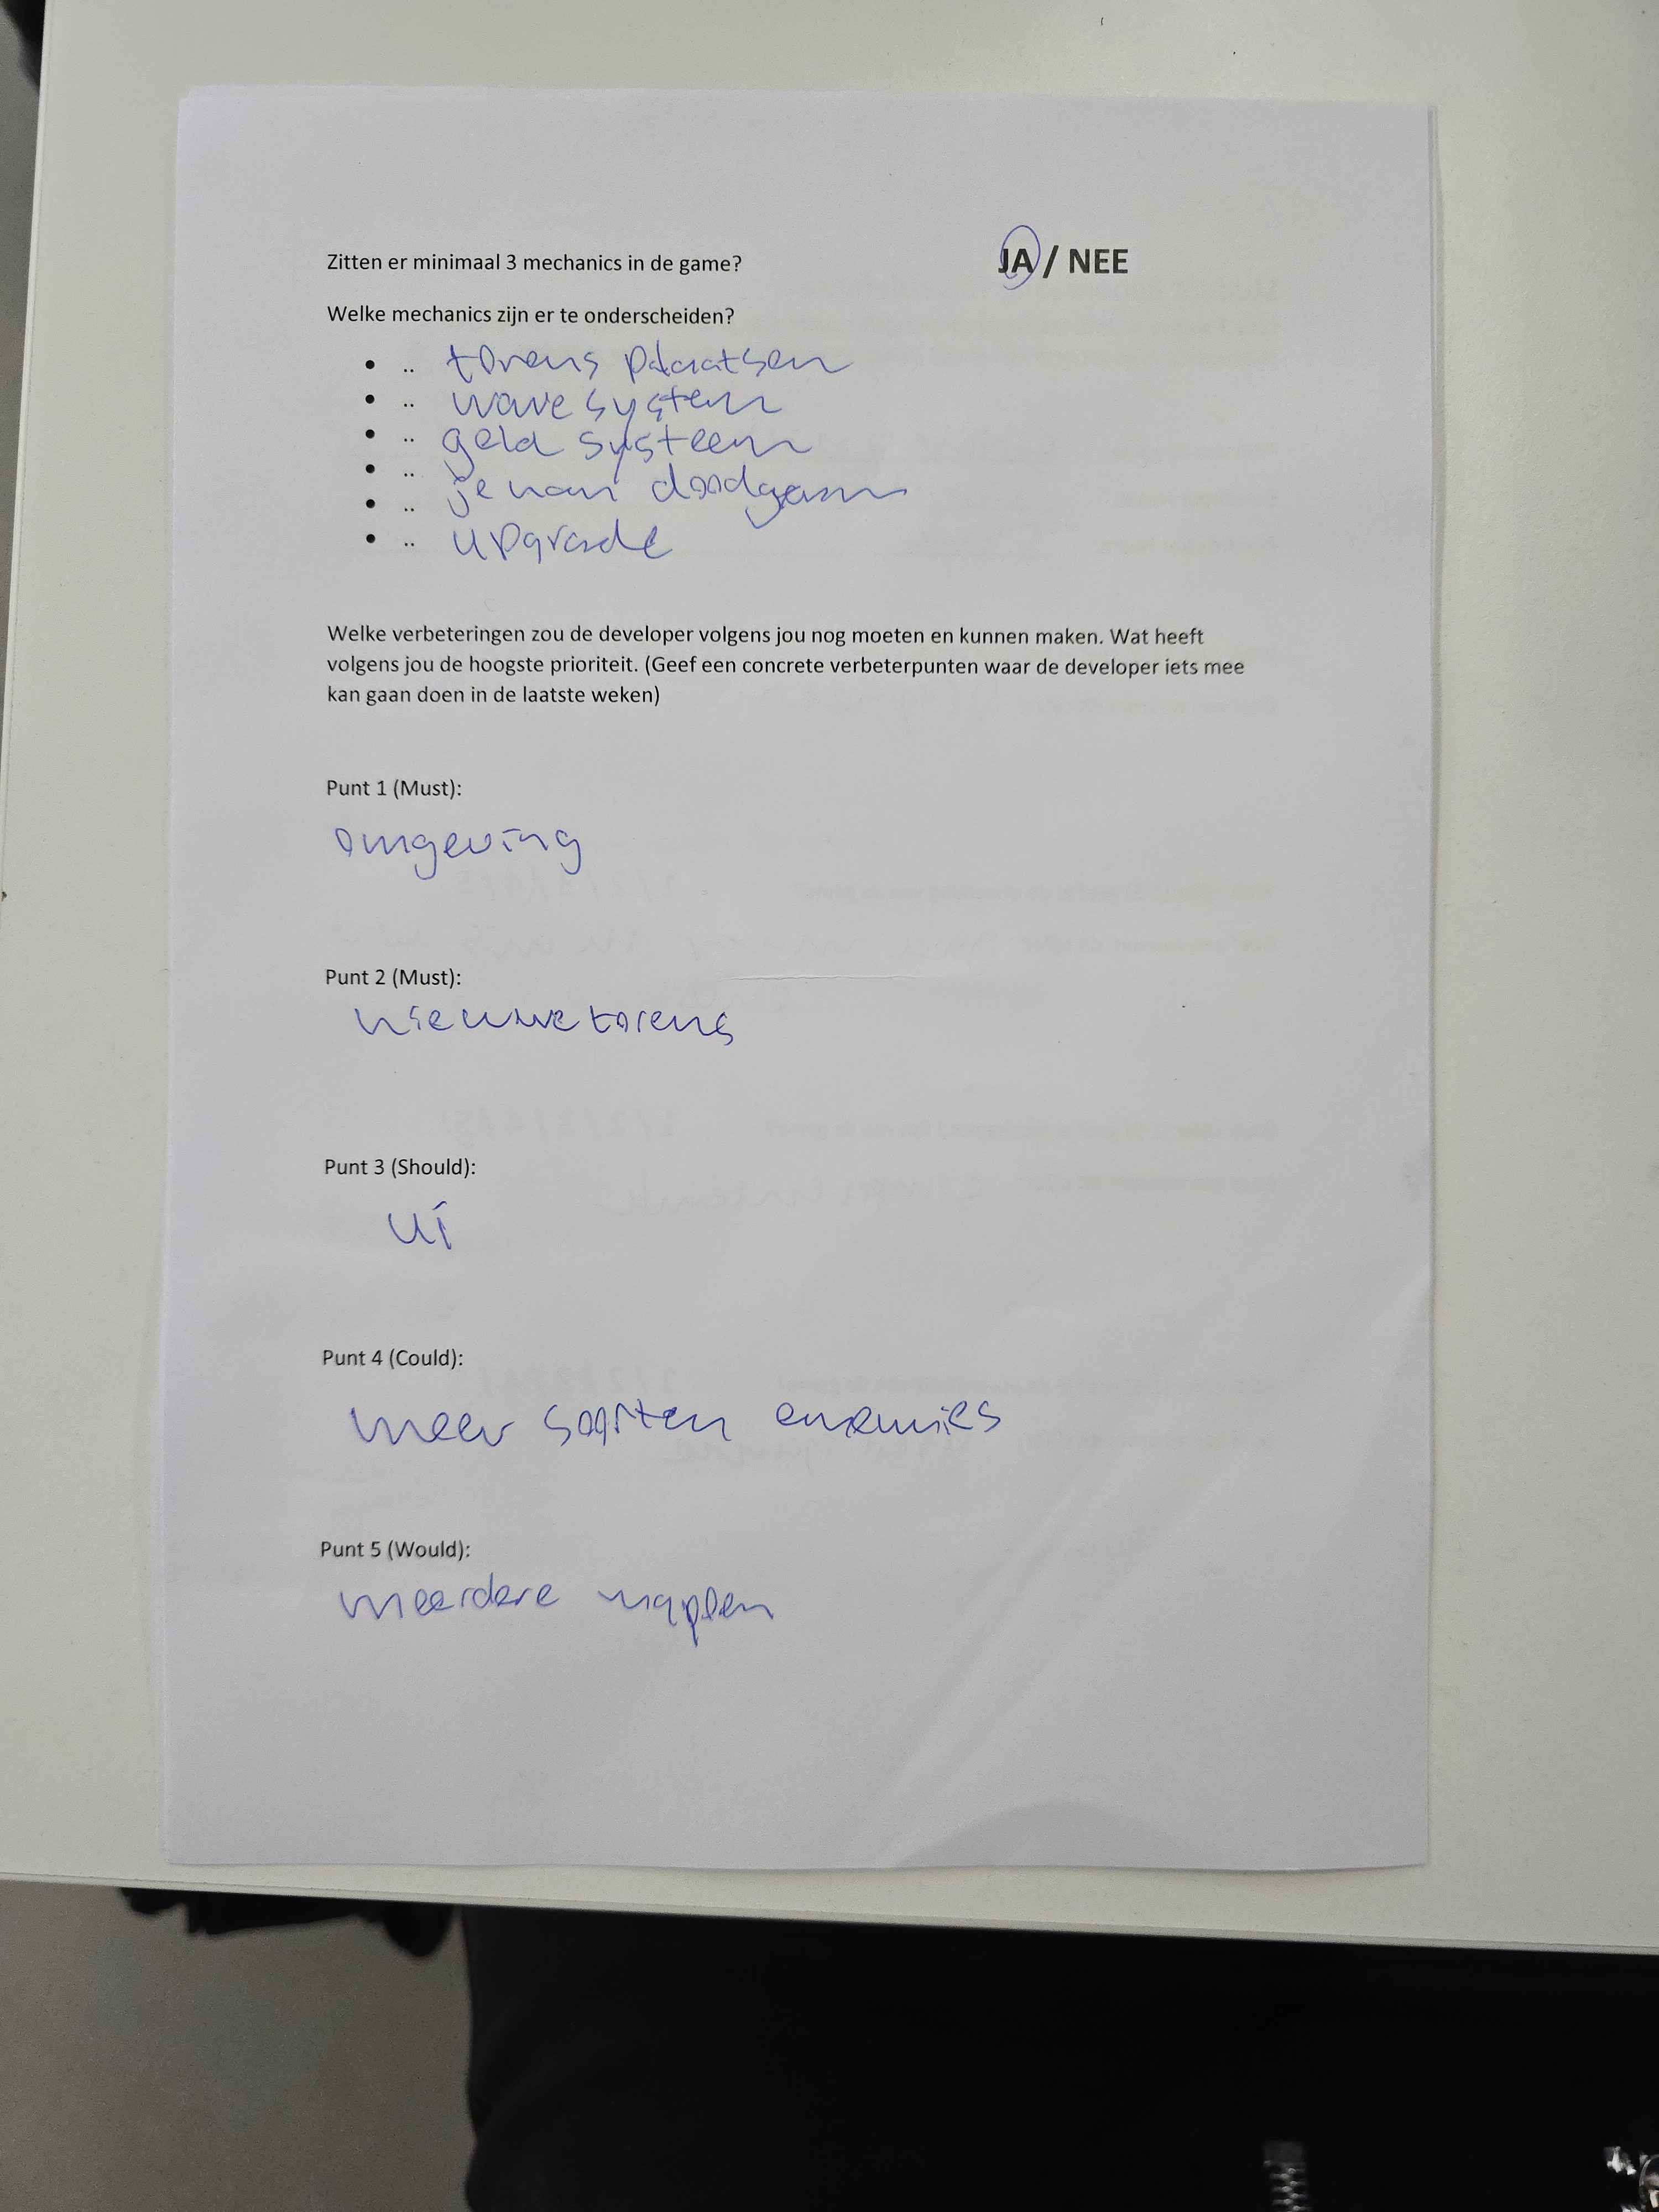 Zitten er minimaal 3 mechanics in de game? JA / NEE
Welke mechanics zijn er te onderscheiden?
• .. torens plaatsen
• .. wave system
• .. geld systeem
• .. je kan doodgaan
• ..
• .. upgrade
Welke verbeteringen zou de developer volgens jou nog moeten en kunnen maken. Wat heeft
volgens jou de hoogste prioriteit. (Geef een concrete verbeterpunten waar de developer iets mee
kan gaan doen in de laatste weken)
Punt 1 (Must):
omgeving
Punt 2 (Must):
nieuwe torens
Punt 3 (Should):
ui
Punt 4 (Could):
meer soorten enemies
Punt 5 (Would):
meerdere mappen